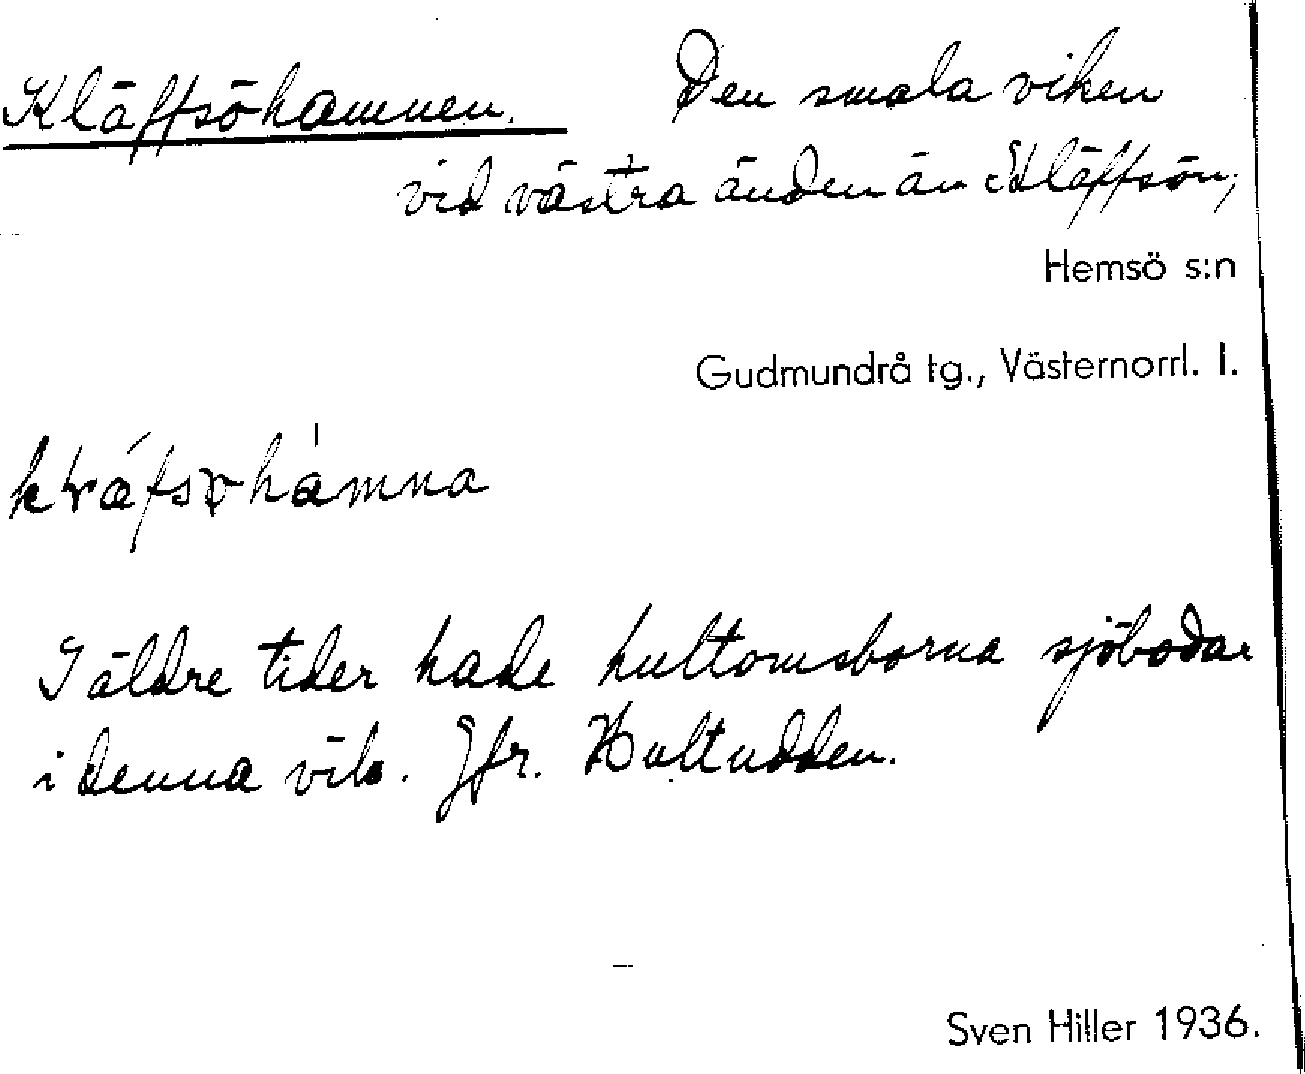 Kläffsöhamnen. Den smala viken
vid västra änden än Kläffsön;
Hemsö s:n
Gudmundrå tg., Västernorrl. l.
I äldre tider hade hultomsborna sjöbodar
i denna vik. Jfr. Hultudden.
Sven Hiller 1936.